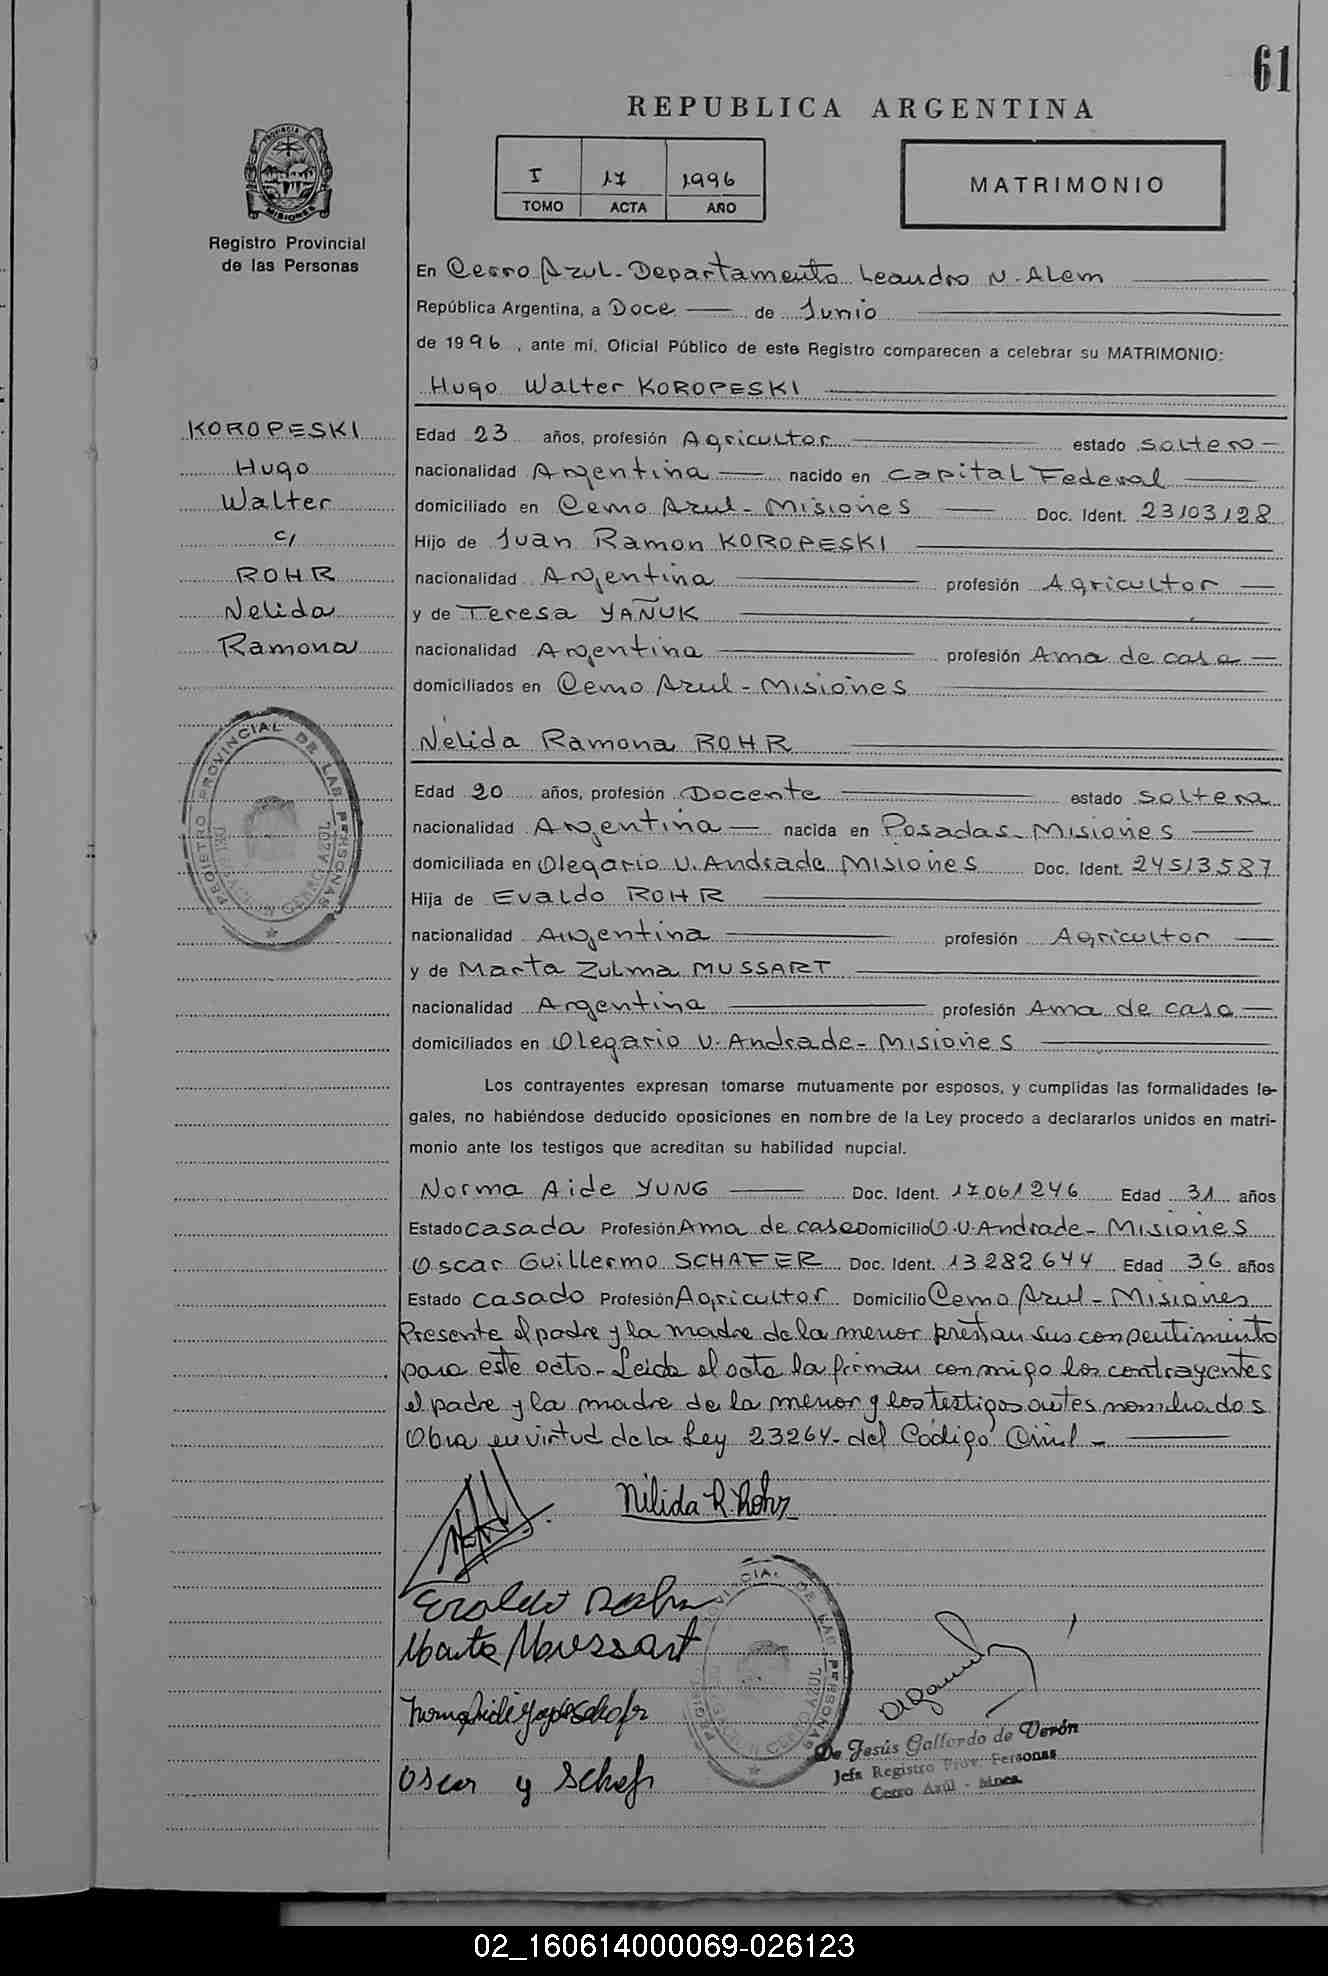 61
REPUBLICA ARGENTINA
I 17 1996
TOMO ACTA AÑO
MATRIMONIO
PROVINCIA DE
MISIONES
Registro Provincial
de las Personas
En Cerro Azul - Departamento Leandro N. Alem
República Argentina, a Doce de Junio
de 1996, ante mí, Oficial Público de este Registro comparecen a celebrar su MATRIMONIO:
Hugo Walter KOROPESKI
KOROPESKI
Hugo
Walter
c/
ROHR
Nelida
Ramona
Edad 23 años, profesión Agricultor estado soltero
nacionalidad Argentina nacido en Capital Federal
domiciliado en Cerro Azul - Misiones Doc. Ident. 23103128
Hijo de Juan Ramon KOROPESKI
nacionalidad Argentina profesión Agricultor
y de Teresa YAÑUK
nacionalidad Argentina profesión Ama de casa
domiciliados en Cerro Azul - Misiones
Nélida Ramona ROHR
Edad 20 años, profesión Docente estado soltera
nacionalidad Argentina nacida en Posadas - Misiones
domiciliada en Olegario V. Andrade Misiones Doc. Ident. 24513587
Hija de Evaldo ROHR
nacionalidad Argentina profesión Agricultor
y de Marta Zulma MUSSART
nacionalidad Argentina profesión Ama de casa
domiciliados en Olegario V. Andrade - Misiones
Los contrayentes expresan tomarse mutuamente por esposos, y cumplidas las formalidades le-
gales, no habiéndose deducido oposiciones en nombre de la Ley procedo a declararlos unidos en matri-
monio ante los testigos que acreditan su habilidad nupcial.
Norma Aide YUNG Doc. Ident. 17061246 Edad 31 años
Estado casada Profesión Ama de casa Domicilio O.V. Andrade - Misiones
Oscar Guillermo SCHAFER Doc. Ident. 13282644 Edad 36 años
Estado casado Profesión Agricultor Domicilio Cerro Azul - Misiones
Presente el padre y la madre de la menor prestan sus consentimiento
para este acto - Leida el acta la firman conmigo los contrayentes
el padre y la madre de la menor y los testigos antes nombrados
Obra en virtud de la Ley 23264 - del Código Civil -
Nilida R. Rohr
Marta Mussart
Oscar y Schafr
REGISTRO PROVINCIAL DE LAS PERSONAS
CERRO AZUL
PROVINCIAL DE LAS PERSONAS
CERRO AZUL
De Jesús Gallardo de Verón
Jefa Registro Prov. Personas
Cerro Azúl - Mnes.
02_160614000069-026123